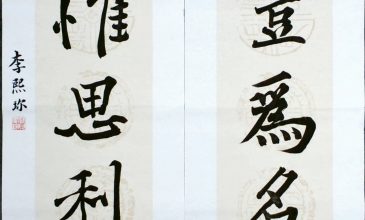 豈爲名
惟思利
李熙